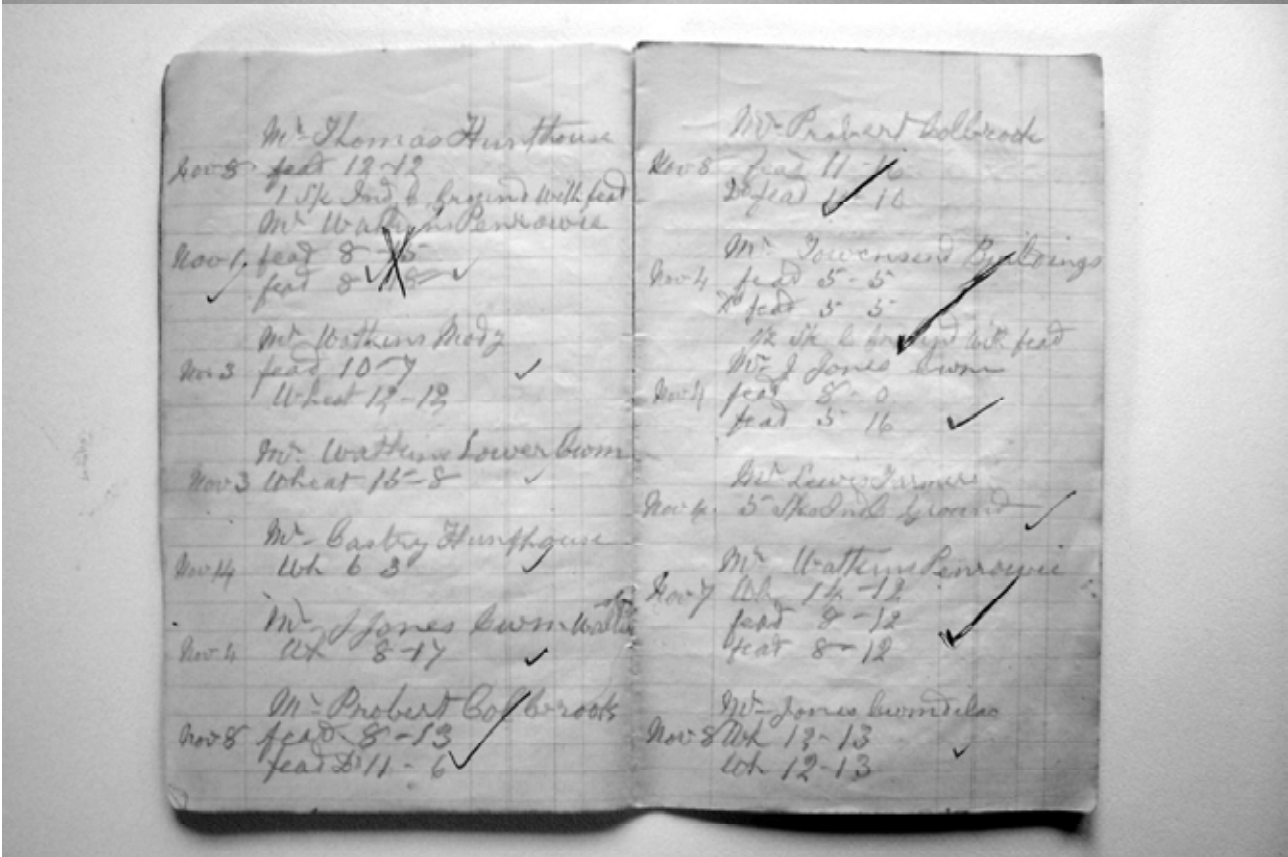 Mr Thomas Hunthouse
Nov 8 fead 12-12
1 Sk Ind C ground with fead
Mr Watkins Penrowie
Nov 1 fead 8 - 5
fead 8
Mr Watkins Mody
Nov 3 fead 10-7
Wheat 12-12
Mr Watkins Lower Cwm
Nov 3 Wheat 15-8
Mr Hunthouse
Nov 4 Wh 6 3
Mr J Jones Cwm
Nov 4 Wh 8-17
Mr Probert Colbrook
Nov 8 fead 8-13
fead D 11-6
Mr Probert Colbrook
Nov 8 fead 11
Do fead
Mr Townsend Buildings
Nov 4 fead 5-5
fead 5 5
Sk C with fead
Mr J Jones Cwm
Nov 4 fead 8-0
fead 5 16
Mr Lewis Farmer
Nov 4 5 Sks Ind C Ground
Mr Watkins Penrowie
Nov 7 Wh 14-12
fead 8-12
fead 8-12
Mr Jones
Nov 8 Wh 12-13
Wh 12-13